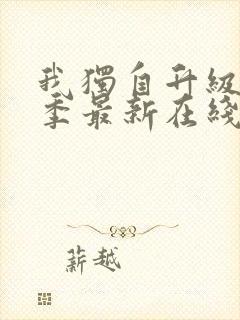 我獨自升級
季最新在綫
薪越